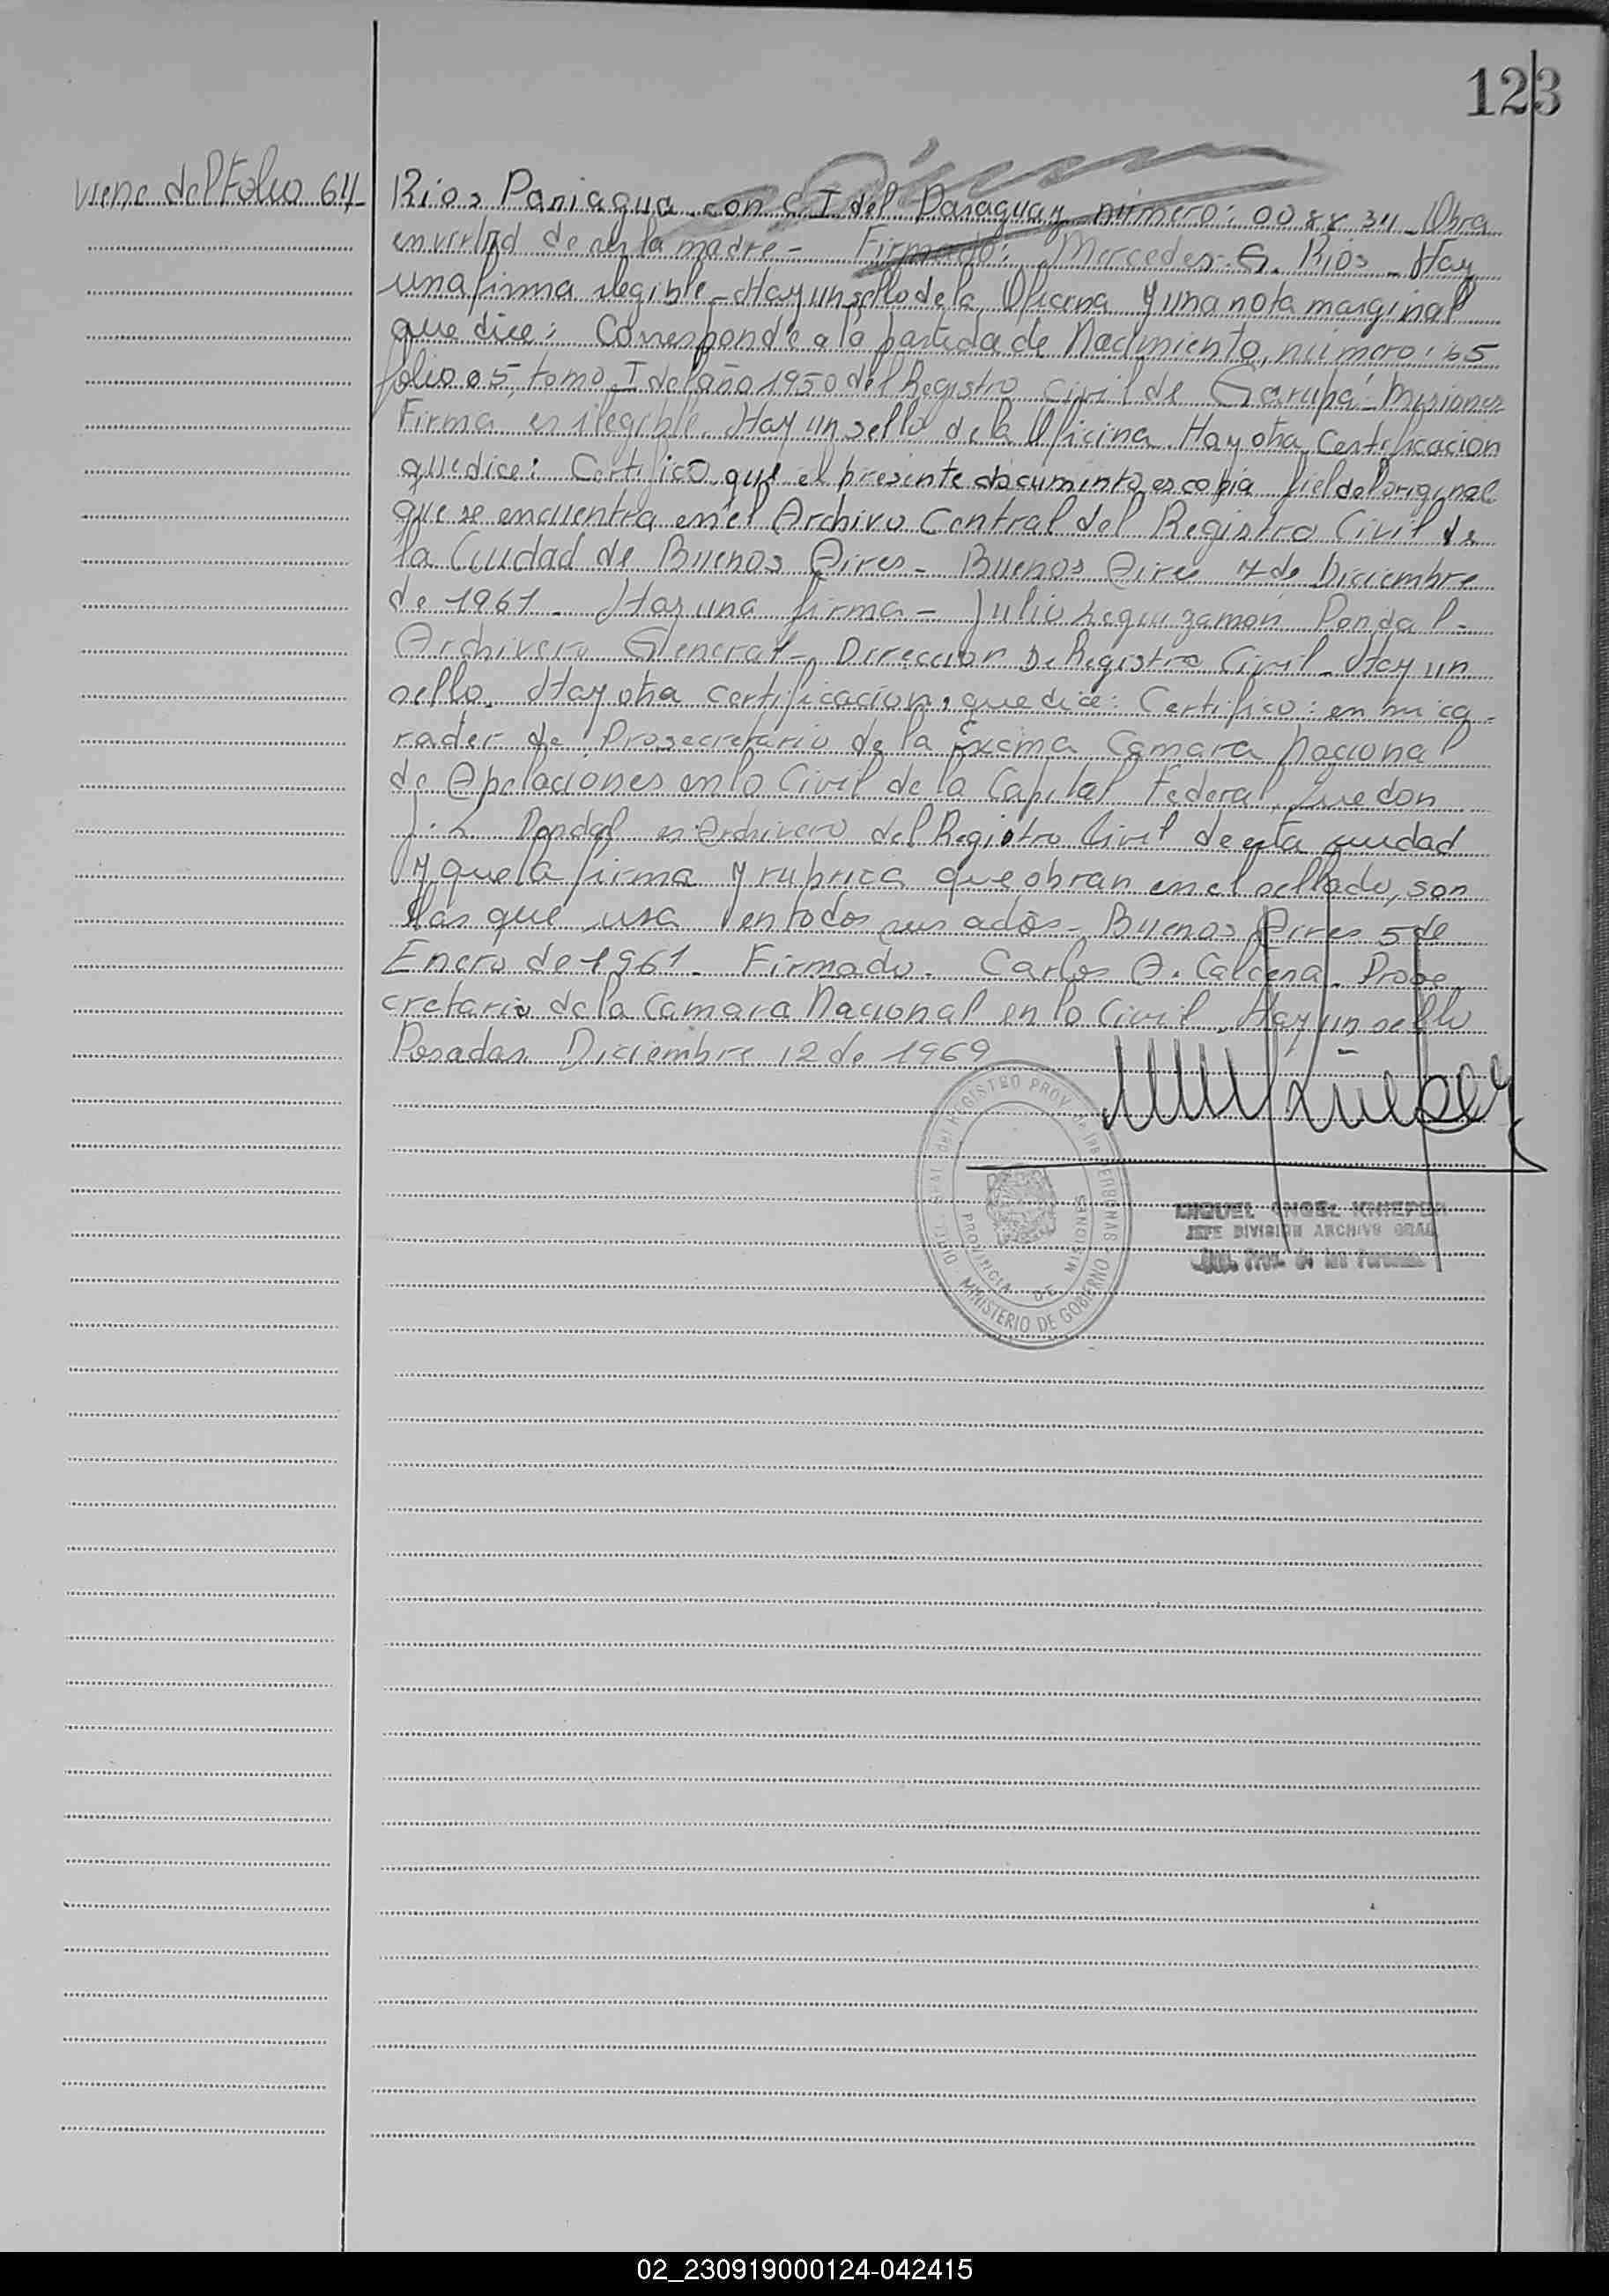 123
viene del Folio 64
Rios Paniagua con C I del Paraguay número: 00 88 34 - Obra
en virtud de ser la madre - Firmado: Mercedes G. Rios - Hay
una firma ilegible - Hay un sello de la Oficina y una nota marginal
que dice: Corresponde a la partida de Nacimiento, número: 65
folio 05, tomo I del año 1950 del Registro Civil de Garupá - Misiones
Firma es ilegible. Hay un sello de la Oficina. Hay otra Certificacion
que dice: Certifico que el presente documento es copia fiel del original
que se encuentra en el Archivo Central del Registro Civil de
la Ciudad de Buenos Aires - Buenos Aires 7 de Diciembre
de 1961 - Hay una firma - Julio Leguizamón Pondal -
Archivero General - Direccion de Registro Civil - Hay un
sello. Hay otra certificacion, que dice: Certifico: en mi ca-
racter de Prosecretario de la Excma Camara Nacional
de Apelaciones en lo Civil de la Capital Federal, Que don
J. L Pondal es Archivero del Registro Civil de esta ciudad
y que la firma y rubrica que obran en el sellado, son
las que usa en todos sus actos - Buenos Aires 5 de
Enero de 1961 - Firmado. Carlos A. Calcena - Prose
cretario de la Camara Nacional en lo Civil - Hay un sello
Posadas Diciembre 12 de 1969
REGISTRO PROV. de las PERSONAS
PROVINCIA DE MISIONES
MINISTERIO DE GOBIERNO
MIGUEL ANGEL KNIEPER
JEFE DIVISION ARCHIVO GRAL
Prov. de las Personas
02_230919000124-042415